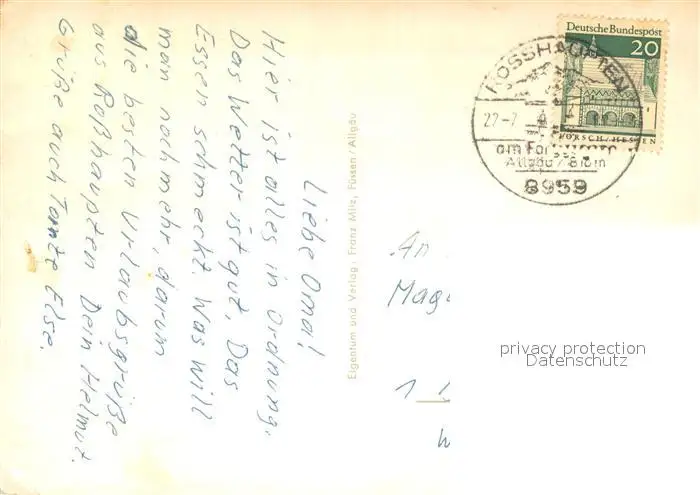 Liebe Oma!
Hier ist alles in Ordnung,
Das Wetter ist gut, Das
Essen schmeckt. Was will
man noch mehr, darum
die besten Urlaubsgrüße
aus Roßhaupten Dein Helmut.
Grüße auch Tante Else.
Eigentum und Verlag: Franz Milz, Füssen/Allgäu
Deutsche Bundespost
20
LORSCH/HESSEN
ROSSHAUPTEN
22-7
am Forggensee
Allgäu
8959
An
privacy protection
Datenschutz
1